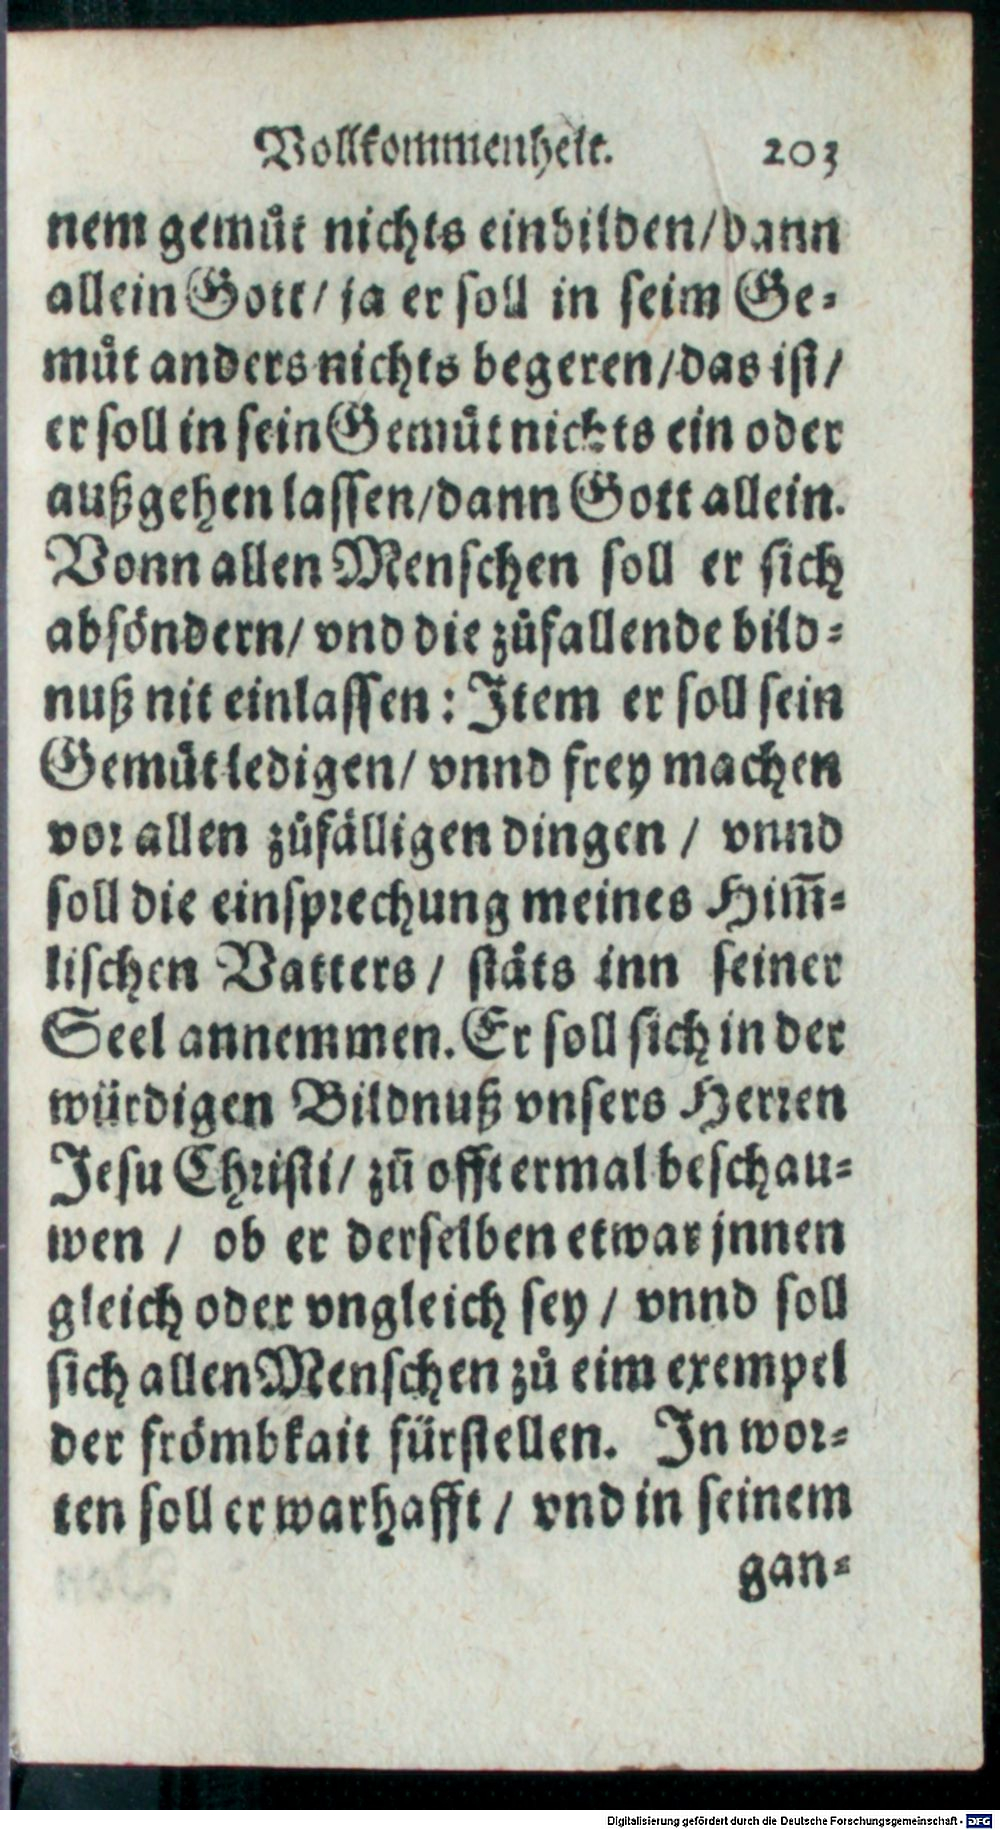 Vollkommenheit. 203
nem gemuͤt nichts einbilden/dann
allein Gott/ ja er soll in seim Ge-
muͤt anders nichts begeren/das ist/
er soll in sein Gemuͤt nichts ein oder
außgehen lassen/dann Gott allein.
Vonn allen Menschen soll er sich
absöndern/ vnd die zuͤfallende bild-
nuß nit einlassen: Item er soll sein
Gemuͤt ledigen/ vnnd frey machen
vor allen zuͤfälligen dingen / vnnd
soll die einsprechung meines Him̃-
lischen Vatters/ staͤts inn seiner
Seel annemmen. Er soll sich in der
würdigen Bildnuß vnsers Herren
Jesu Christi/ zuͦ offtermal beschau-
wen / ob er derselben etwar jnnen
gleich oder vngleich sey/ vnnd soll
sich allen Menschen zuͦ eim exempel
der frömbkait fürstellen. In wor-
ten soll er warhafft/ vnd in seinem
gan-
Digitalisierung gefördert durch die Deutsche Forschungsgemeinschaft - DFG